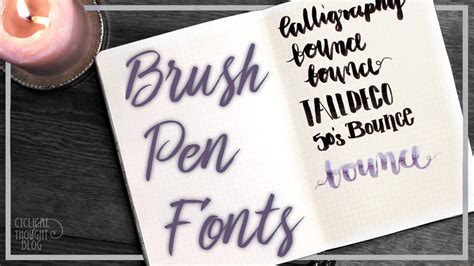 Brush
Pen
Fonts
Calligraphy
bounce
bounce
TALLDECO
50's Bounce
bounce
CYCLICAL
THOUGHT
BLOG